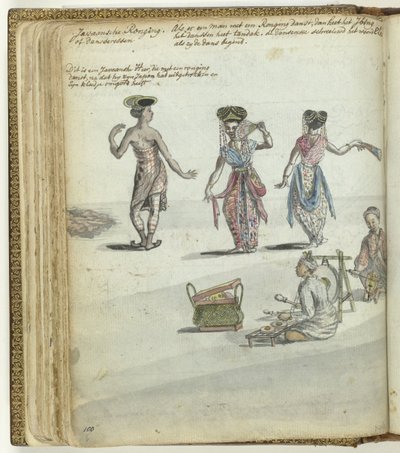 Javaansche Ronging.
of danseressen
Als er een man met een Ronging danst, dan heet het
het danssen heet tandak. de danseresse
als zy de dans begint.
Dit is een Javaansche Heer, die met een ronging
danst, na dat hy zyn Japon had uitgetrokken en
zyn kleedje omgord heeft
100